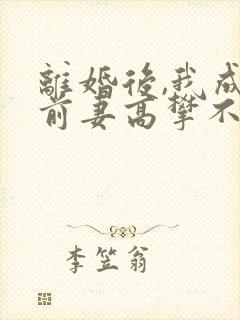 離婚後,我成
前妻高攀不
李笠翁